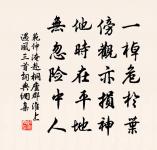 一棹危於葉
傍觀亦損神
他時在平地
無忽險中人
范仲淹赴桐廬郡淮上
遇風三首詞典網集